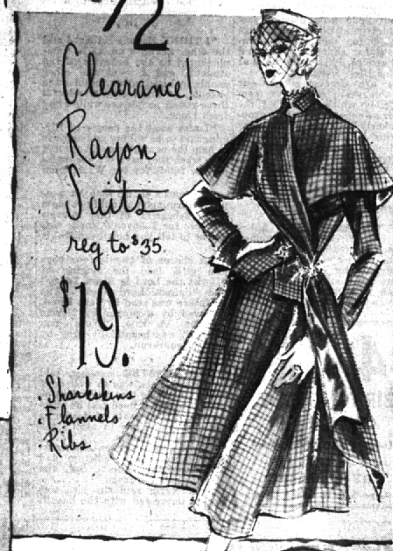 1/2
Clearance!
Rayon
Suits
reg to $35.
$19.
. Sharkskins
. Flannels
. Ribs